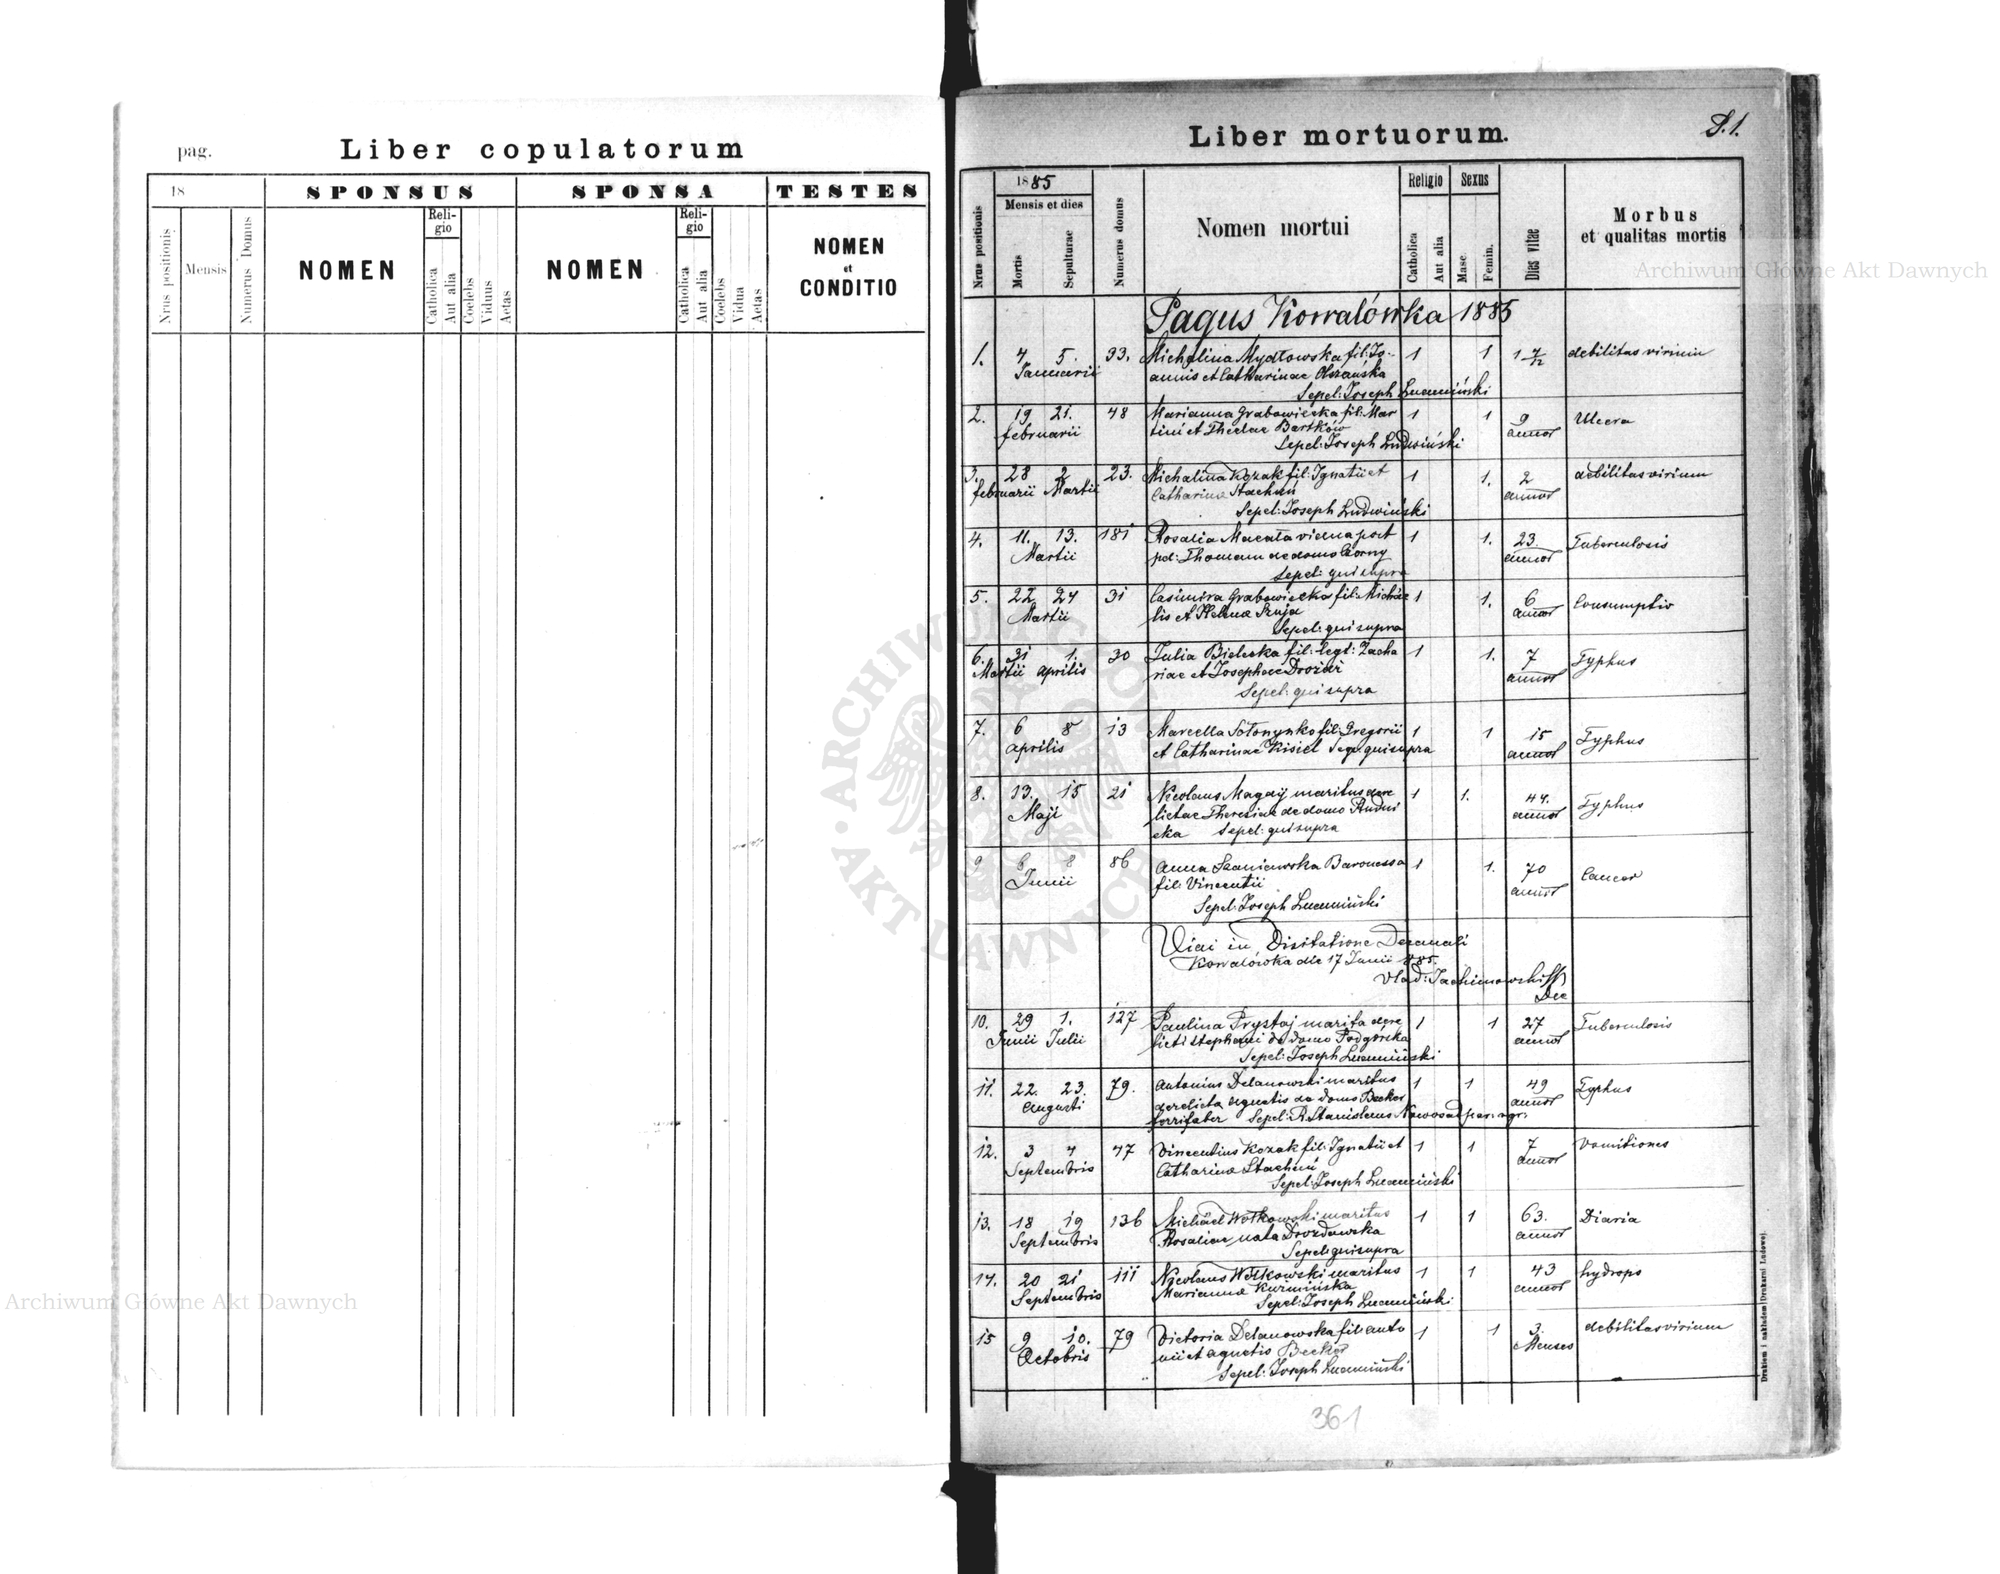 pag.
Liber copulatorum
18
SPONSUS
SPONSA
TESTES
Nrus positionis
Mensis
Numerus Domus
NOMEN
Reli-
gio
Catholica
Aut alia
Coelebs
Viduus
Aetas
NOMEN
Reli-
gio
Catholica
Aut alia
Coelebs
Vidua
Aetas
NOMEN
et
CONDITIO
Liber mortuorum.
Nrus positionis
1885
Mensis et dies
Mortis
Sepulturae
Numerus domus
Nomen mortui
Religio
Catholica
Aut alia
Sexus
Masc.
Femin.
Dies vitae
Morbus
et qualitas mortis
Pagus Kowalówka 1885
1. 4 5. 93. Michalina Mydłowska fil: Jo- 1 1 debilitas virium
Januarii annis et Catharinae Olszańska
Sepel: Joseph
2. 19 21. 48 Marianna Grabowiecka fil: Mar 1 1 9 Ulcera
februarii tini et Theclae Bartków annor
Sepel: Joseph Ludwiński
3. 28 2 23. Michalina Kozak fil: Ignatii et 1 1. 2 debilitas virium
februarii Martii Catharina Stachui annor
Sepel: Joseph Ludwiński
4. 11. 13. 181 Rosalia Macała vidua post 1 1. 23. Tuberculosis
Martii pd: Thomam de domo Czorny annor
Sepel: qui supra
5. 22 24 31 Casimira Grabowiecka fil: Michae 1 1. 6 Consumptio
Martii lis et Helena annor
Sepel: qui supra
6. 31 1. 30 Julia Bielecka fil: legt: Zacha 1 1. 7 Typhus
Martii aprilis riae et Josephae annor
Sepel: qui supra
7. 6 8 13 Marcella Sołonynko fil: Gregorii 1 1 15 Typhus
aprilis et Catharinae Kisiel Sepe: qui supra annor
8. 13. 15 21 Nicolaus Magdij maritus dere 1 1. 44. Typhus
Maji lictae Theresiae de domo Rudni annor
cka Sepel: qui supra
9 6 8 86 Anna Szaniawska Baronessa 1 1. 70 Cancer
Junii fil: Vincentii annor
Sepel: Joseph
Vidi in Visitatione Decanali
Kowalówka die 17 Junii 885.
Vlad: Jachimowski
Dec
10. 29 1. 127 Paulina Prystaj marita dere 1 1 27 Tuberculosis
Junii Julii licti Stephani de domo Podgórska annor
Sepel: Joseph
11. 22. 23. 79. Antonius Delanowski maritus 1 1 49 Typhus
Augusti derelicta Agnetis de domo Becker annor
ferrifaber Sepel: R. Stanislaus Nowosad
12. 3 4 47 Vincentius Kozak fil: Ignatii et 1 1 7 Vomitiones
Septembris Catharina Stachui annor
Sepel: Joseph
13. 18 19 136 Michael Wołkowski maritus 1 1 63. Diaria
Septembris Rosaliae nata Drozdowska annor
Sepel: qui supra
14. 20 21 111 Nicolaus Wołkowski maritus 1 1 43 hydrops
Septembris Marianna Kuzmińska annor
Sepel: Joseph
15 9 10. 79 Victoria Delanowska fil: Anto 1 1 3. debilitas virium
Octobris nii et Agnetis Becker Menses
Sepel: Joseph
361
Drukiem i nakładem Drukarni Ludowej
Archiwum Główne Akt Dawnych
Archiwum Główne Akt Dawnych
ARCHIWUM GŁÓWNE AKT DAWNYCH